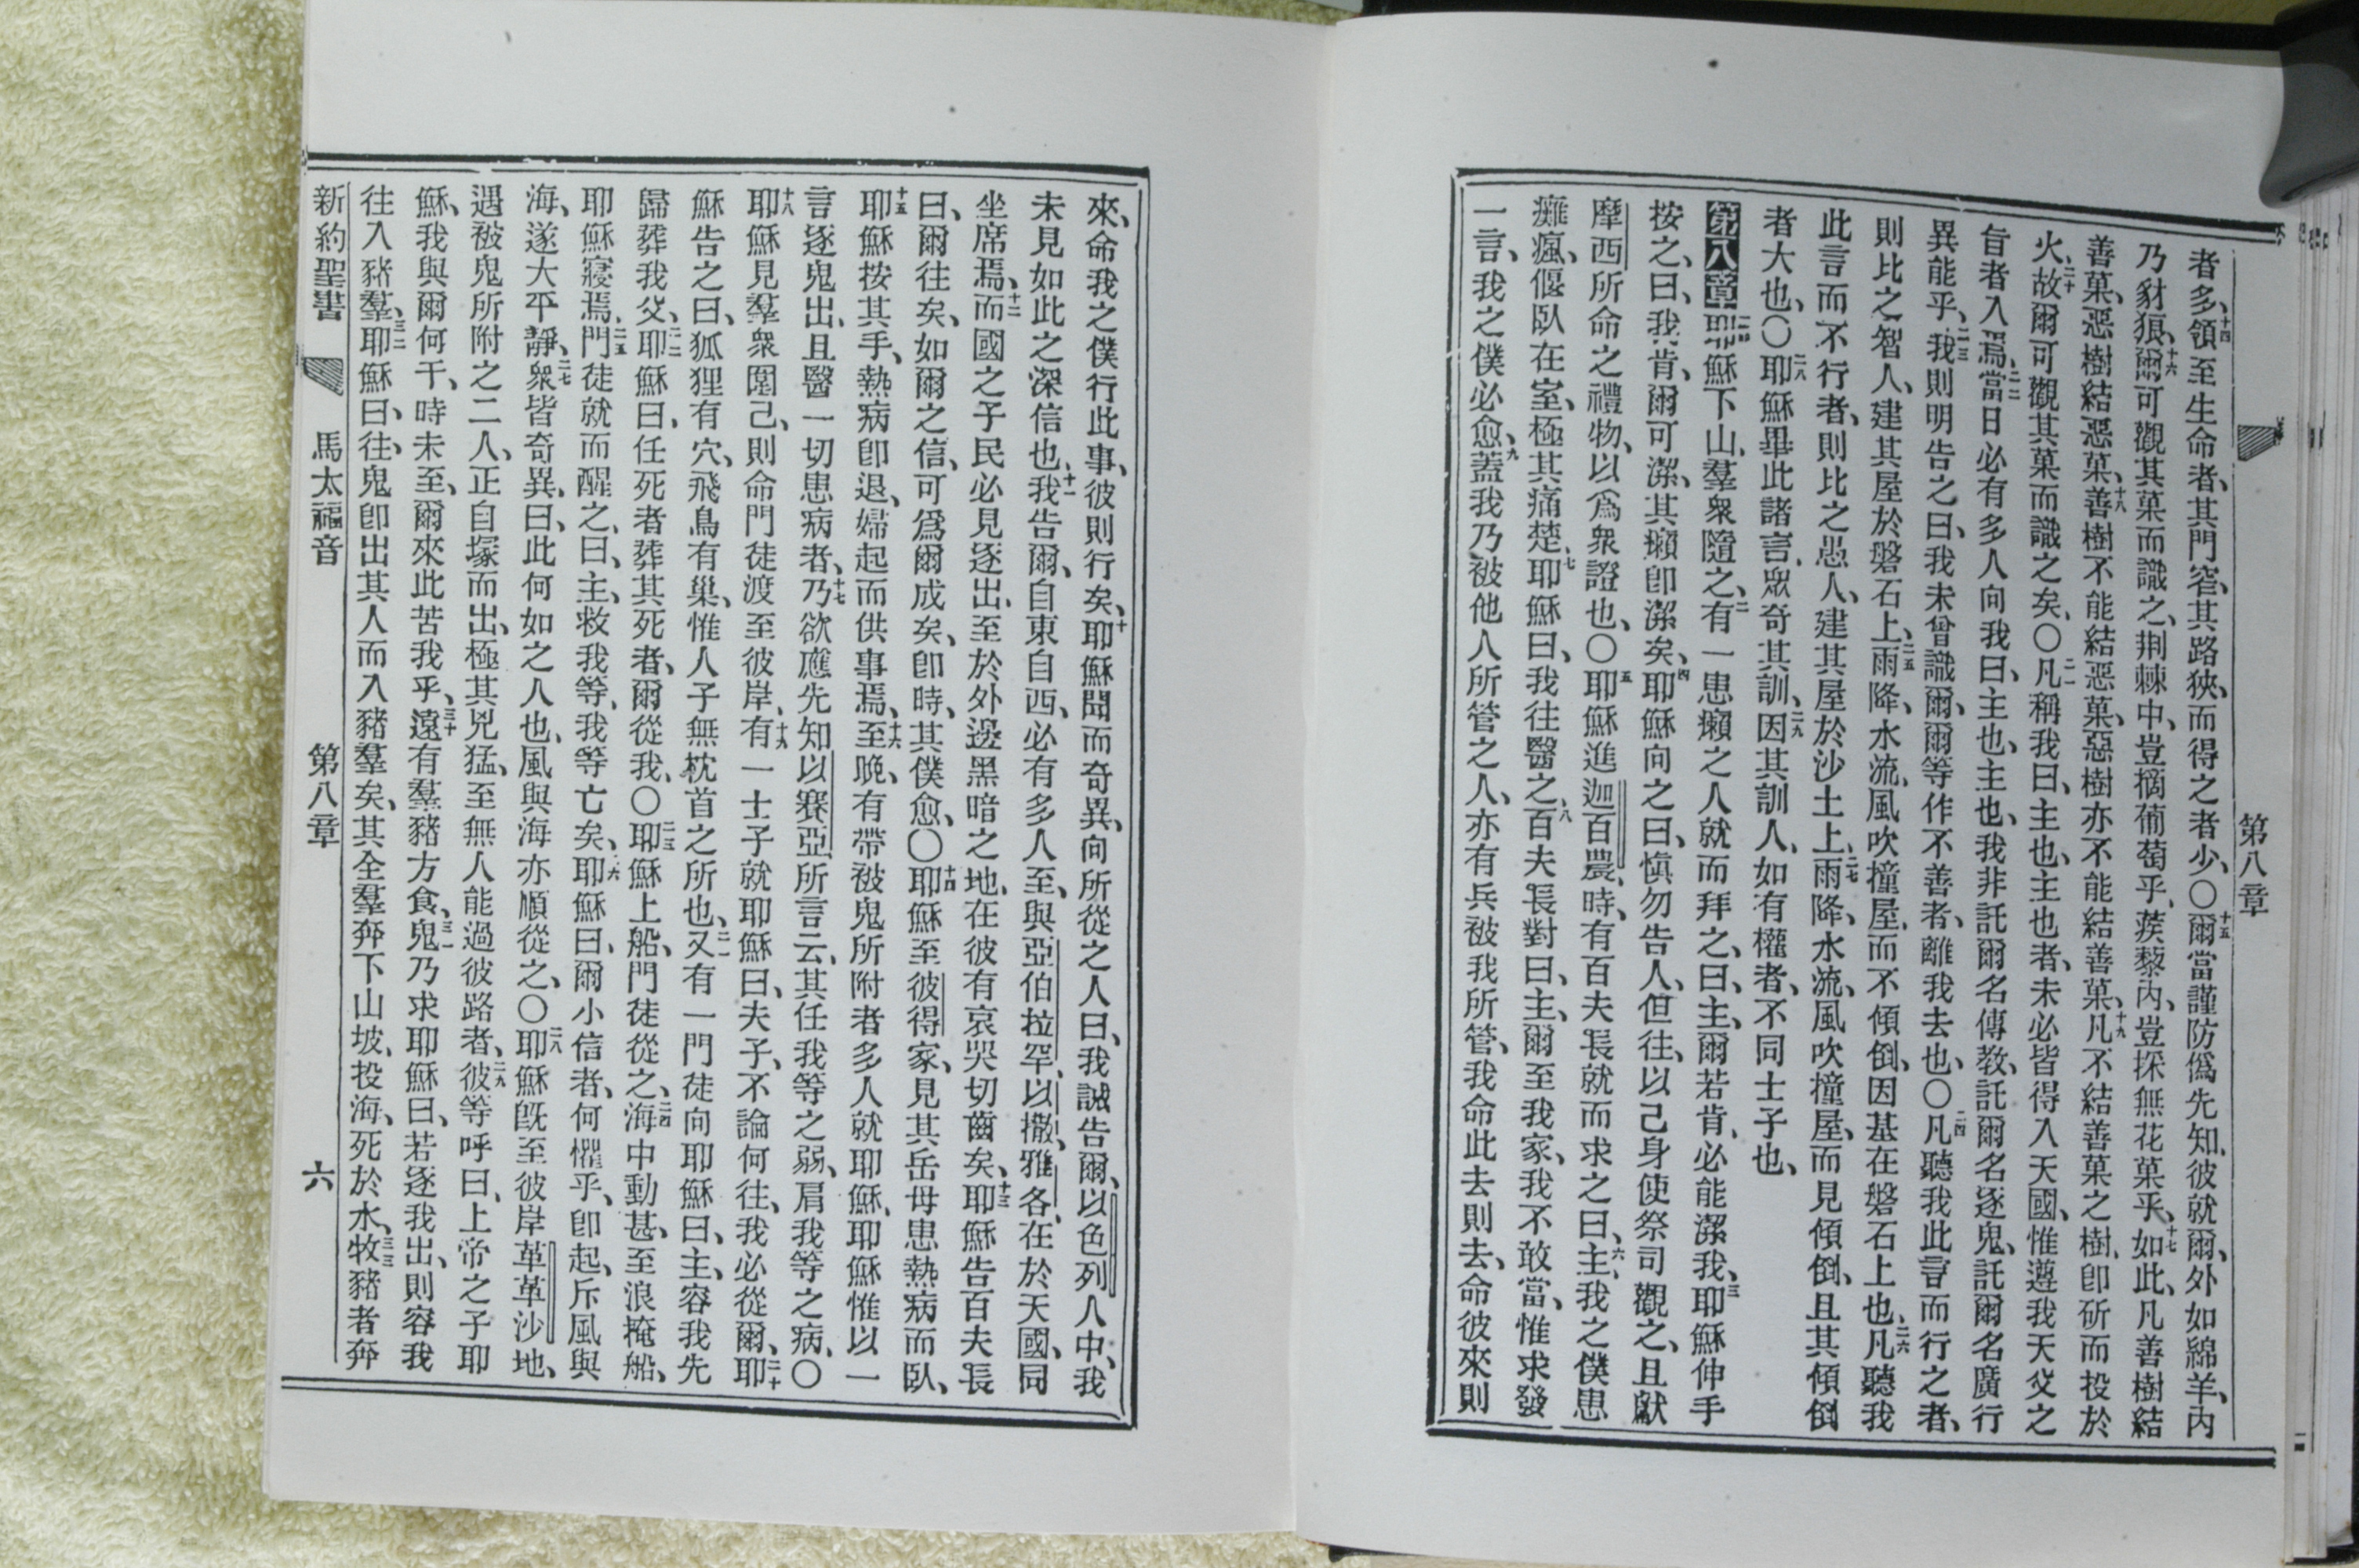 第八章
者多、十四領至生命者、其門窄、其路狹、而得之者少、〇十五爾當謹防僞先知、彼就爾、外如綿羊、內
乃豺狼、十六爾可觀其菓而識之、荆棘中、豈摘葡萄乎、蒺藜內、豈探無花菓乎、十七如此、凡善樹結
善菓、惡樹結惡菓、十八善樹不能結惡菓、惡樹亦不能結善菓、十九凡不結善菓之樹、卽斫而投於
火、二十故爾可觀其菓而識之矣、〇二一凡稱我曰、主也、主也者、未必皆得入天國、惟遵我天父之
旨者入焉、二二當日必有多人向我曰、主也、主也、我非託爾名傳教、託爾名逐鬼、託爾名廣行
異能乎、二三我則明告之曰、我未曾識爾、爾等作不善者、離我去也、〇二四凡聽我此言而行之者、
則比之智人、建其屋於磐石上、二五雨降、水流、風吹撞屋、而不傾倒、因基在磐石上也、二六凡聽我
此言而不行者、則比之愚人、建其屋於沙土上、二七雨降、水流、風吹撞屋、而見傾倒、且其傾倒
者大也、〇二八耶穌畢此諸言、眾奇其訓、二九因其訓人、如有權者、不同士子也、
第八章 耶穌下山、羣衆隨之、二有一患癩之人就而拜之、曰、主、爾若肯、必能潔我、三耶穌伸手
按之、曰、我肯、爾可潔、其癩卽潔矣、四耶穌向之曰、愼勿告人、但往、以己身使祭司觀之、且獻
摩西所命之禮物、以爲衆證也、〇五耶穌進迦百農、時、有百夫長就而求之曰、六主、我之僕患
癱瘋、偃臥在室、極其痛楚、七耶穌曰、我往醫之、八百夫長對曰、主、爾至我家、我不敢當、惟求發
一言、我之僕必愈、九蓋我乃被他人所管之人、亦有兵被我所管、我命此去則去、命彼來則
來、命我之僕行此事、彼則行矣、十耶穌聞而奇異、向所從之人曰、我誠告爾、以色列人中、我
未見如此之深信也、十一我告爾、自東自西、必有多人至、與亞伯拉罕、以撒、雅各、在於天國、同
坐席焉、十二而國之子民必見逐出、至於外邊黑暗之地、在彼有哀哭切齒矣、十三耶穌告百夫長
曰、爾往矣、如爾之信、可爲爾成矣、卽時、其僕愈、〇十四耶穌至彼得家、見其岳母患熱病而臥、
十五耶穌按其手、熱病卽退、婦起而供事焉、十六至晚、有帶被鬼所附者多人就耶穌、耶穌惟以一
言逐鬼出、且醫一切患病者、十七乃欲應先知以賽亞所言云、其任我等之弱、肩我等之病、〇
十八耶穌見羣衆圍己、則命門徒渡至彼岸、十九有一士子就耶穌曰、夫子、不論何往、我必從爾、二十耶
穌告之曰、狐狸有穴、飛鳥有巢、惟人子無枕首之所也、二一又有一門徒向耶穌曰、主、容我先
歸葬我父、二二耶穌曰、任死者葬其死者、爾從我、〇二三耶穌上船、門徒從之、二四海中動甚、至浪掩船、
耶穌寢焉、二五門徒就而醒之、曰、主、救我等、我等亡矣、二六耶穌曰、爾小信者、何懼乎、卽起、斥風與
海、遂大平靜、二七衆皆奇異、曰、此何如之人也、風與海亦順從之、〇二八耶穌旣至彼岸革革沙地、
遇被鬼所附之二人、正自塚而出、極其兇猛、至無人能過彼路者、二九彼等呼曰、上帝之子耶
穌、我與爾何干、時未至、爾來此苦我乎、三十遠有羣豬方食、三一鬼乃求耶穌曰、若逐我出、則容我
往入豬羣、三二耶穌曰、往、鬼卽出其人而入豬羣矣、其全羣奔下山坡、投海、死於水、三三牧豬者奔
新約聖書 馬太福音 第八章 六